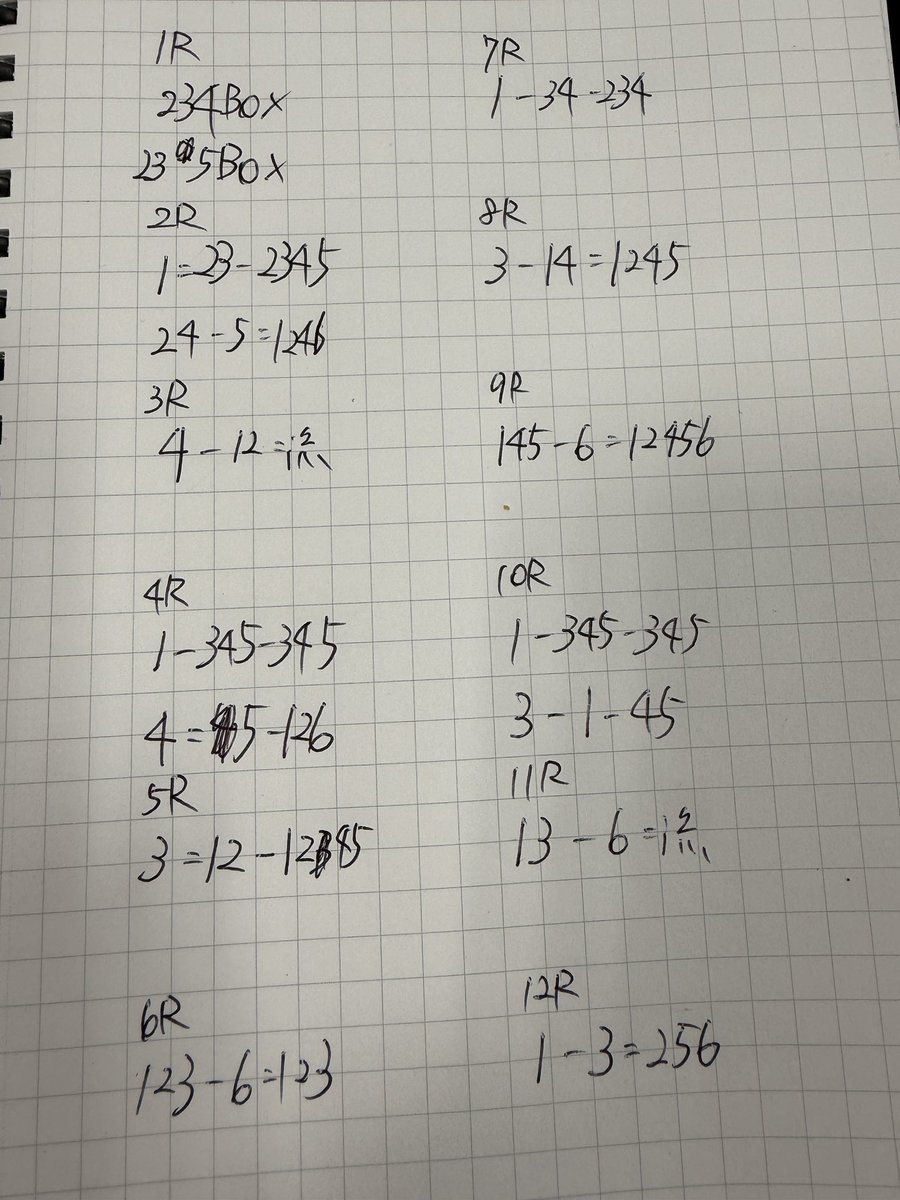 1R
234BOX
235BOX
2R
1=23-2345
24-5=1246
3R
4-12=流
4R
1-345-345
4=5-126
5R
3=12-1245
6R
123-6=123
7R
1-34-234
8R
3-14=1245
9R
145-6=12456
10R
1-345-345
3-1-45
11R
13-6=流
12R
1-3=256